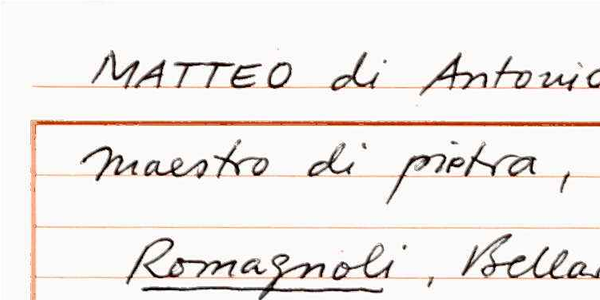 MATTEO di Antonio
maestro di pietra,
Romagnoli, Bella